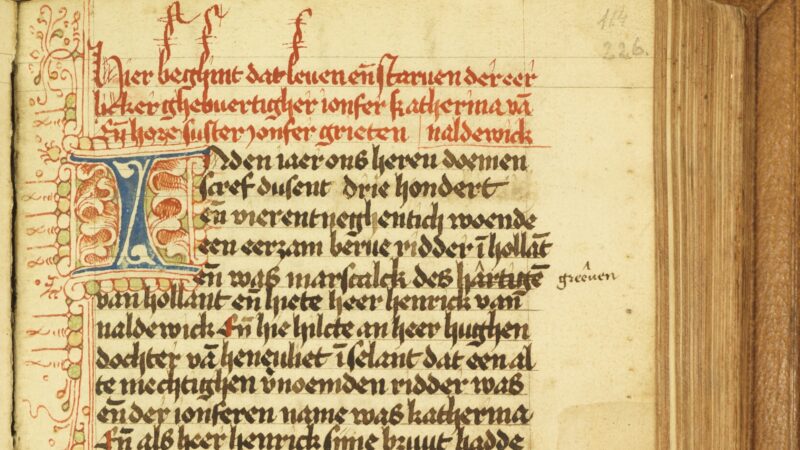 114
226.
Hier beghint dat leven eñ starven der eer
licker ghebuertigher ionfer katherina vā
Eñ hoze suster ionfer grieten naldewick
INden iaer ons heren doemen
scref dusent drie hondert
eñ vierentneghentich woende
een eerzam berue ridder ī hollāt
eñ was marscalck des hartigē
greeuen
van hollant eñ hiete heer henrick vañ
naldewick Eñ hie hilcte an heer hughen
dochter vā heneuliet ī selant dat een al
te mechtighen v̄noemden ridder was
eñ der ionferen name was katherina
Eñ als heer henrick sine bruut hadde